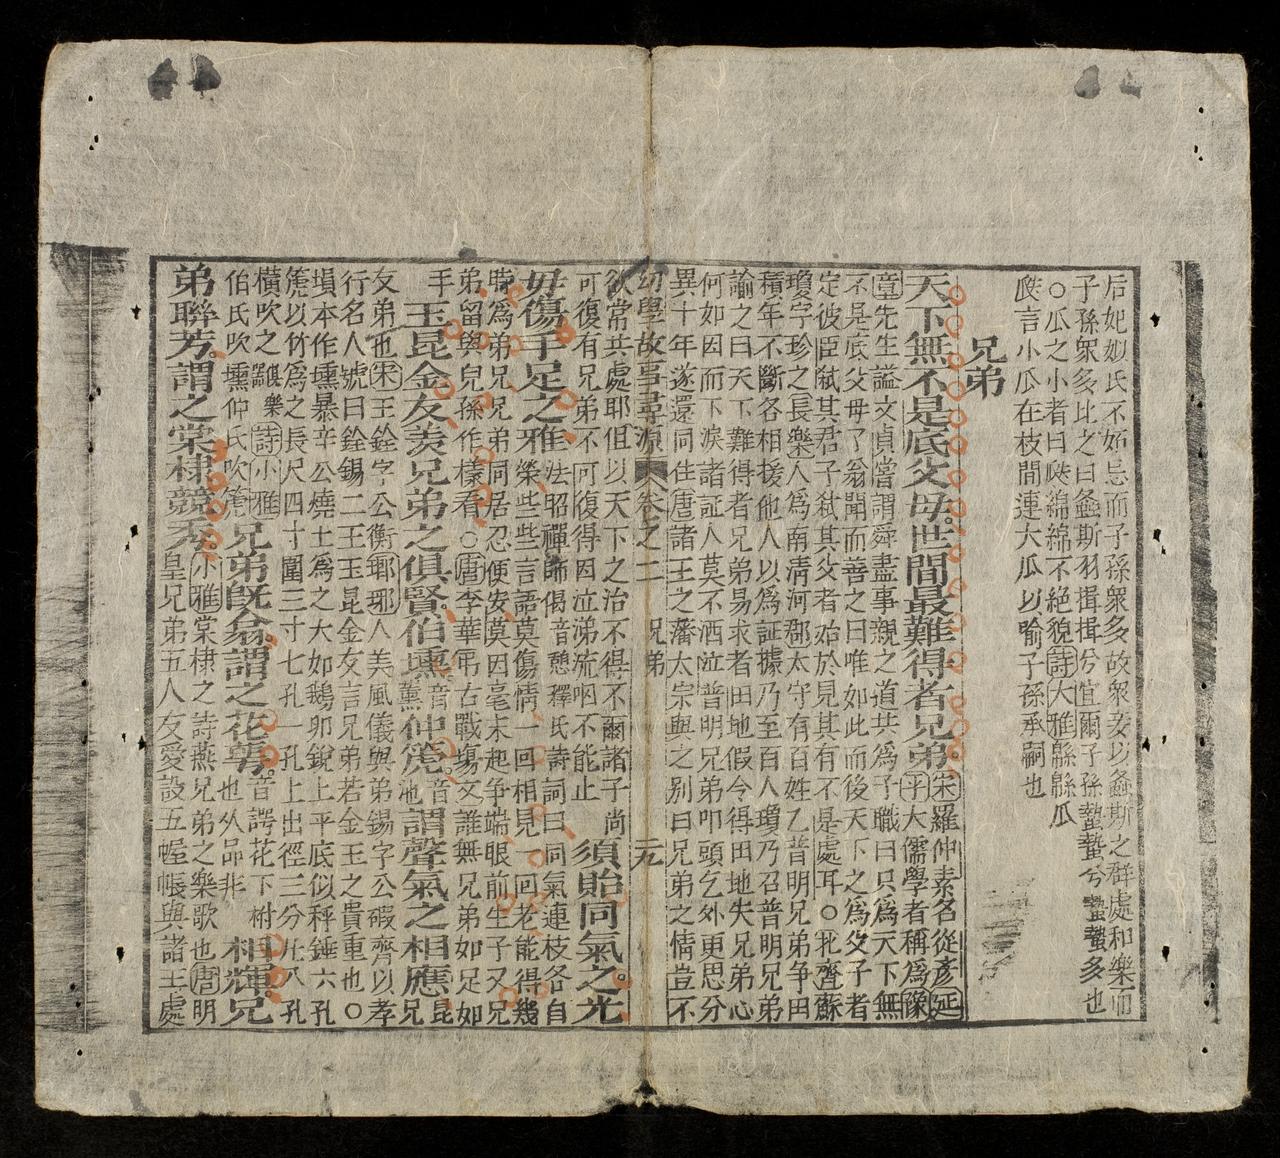 后妃姒氏不妬忌而子孫衆多故衆妾以螽斯之群處和樂而
子孫衆多比之曰螽斯羽揖揖兮宜爾子孫蟄蟄兮蟄蟄多也
○瓜之小者曰瓞綿綿不絕貌詩大雅緜緜瓜
瓞言小瓜在枝間連大瓜以喻子孫承嗣也
兄弟
天下無不是底父母世間最難得者兄弟
宋羅仲素名從彥延
平大儒學者稱爲豫
章先生謚文貞嘗謂舜盡事親之道共爲子職曰只爲天下無
不是底父母了翁聞而善之曰唯如此而後天下之爲父子者
定彼臣弒其君子弒其父者始於見其有不是處耳○北齊蘇
瓊字珍之長樂人爲南清河郡太守有百姓乙普明兄弟争田
積年不斷各相援他人以爲証據乃至百人瓊乃召普明兄弟
諭之曰天下難得者兄弟易求者田地假令得田地失兄弟心
何如因而下淚諸証人莫不洒泣普明兄弟叩頭乞外更思分
異十年遂還同住唐諸王之藩太宗與之别曰兄弟之情豈不
幼學故事尋源 卷之二 兄弟 二九
欲常共處耶但以天下之治不得不爾諸子尚
可復有兄弟不可復得因泣涕流咽不能止
須貽同氣之光
毋傷手足之雅
法昭禪師偈音憩釋氏詩詞曰同氣連枝各自
榮些些言語莫傷情一回相見一回老能得幾
時爲弟兄兄弟同居忍便安莫因毫末起争端眼前生子又兄
弟留與兒孫作樣看○唐李華吊古戰場文誰無兄弟如足如
手
玉昆金友羨兄弟之俱賢伯壎音熏仲篪音池謂聲氣之相應
昆兄
友弟也宋王銓字公衡瑯琊人美風儀與弟錫字公嘏齊以孝
行名人號曰銓錫二王玉昆金友言兄弟若金玉之貴重也○
塤本作壎暴辛公燒土爲之大如鵝卵銳上平底似秤錘六孔
篪以竹爲之長尺四寸圍三寸七孔一孔上出徑三分凡八孔
橫吹之 樂詩小雅
伯氏吹壎仲氏吹篪
兄弟既翕謂之花萼
音諤花下柎
也从品非
相輝兄
弟聯芳謂之棠棣競秀
小雅棠棣之詩燕兄弟之樂歌也唐明
皇兄弟五人友愛設五幄帳與諸王處